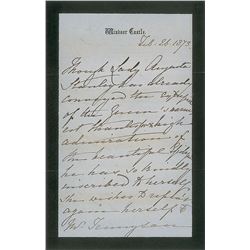 Windsor Castle.
Feb. 26. 1873.
Though Lady Augusta
Stanley has already
conveyed the expression
of the Queen's warm-
est thanks & high
admiration of
the beautiful Epilogue
he has so kindly
inscribed to herself
She wishes to
again herself to
Mr Tennyson